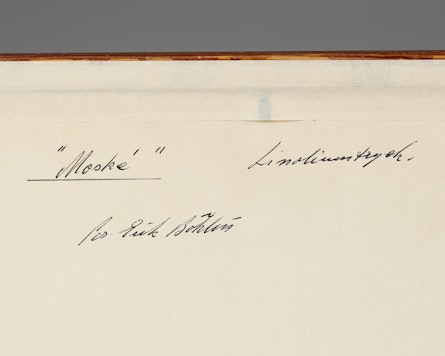 "Moské" Linoliumtryck.
Bo Erik Böhlin